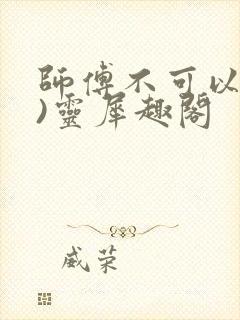 師傅不可以
)靈犀趣閣
威荣